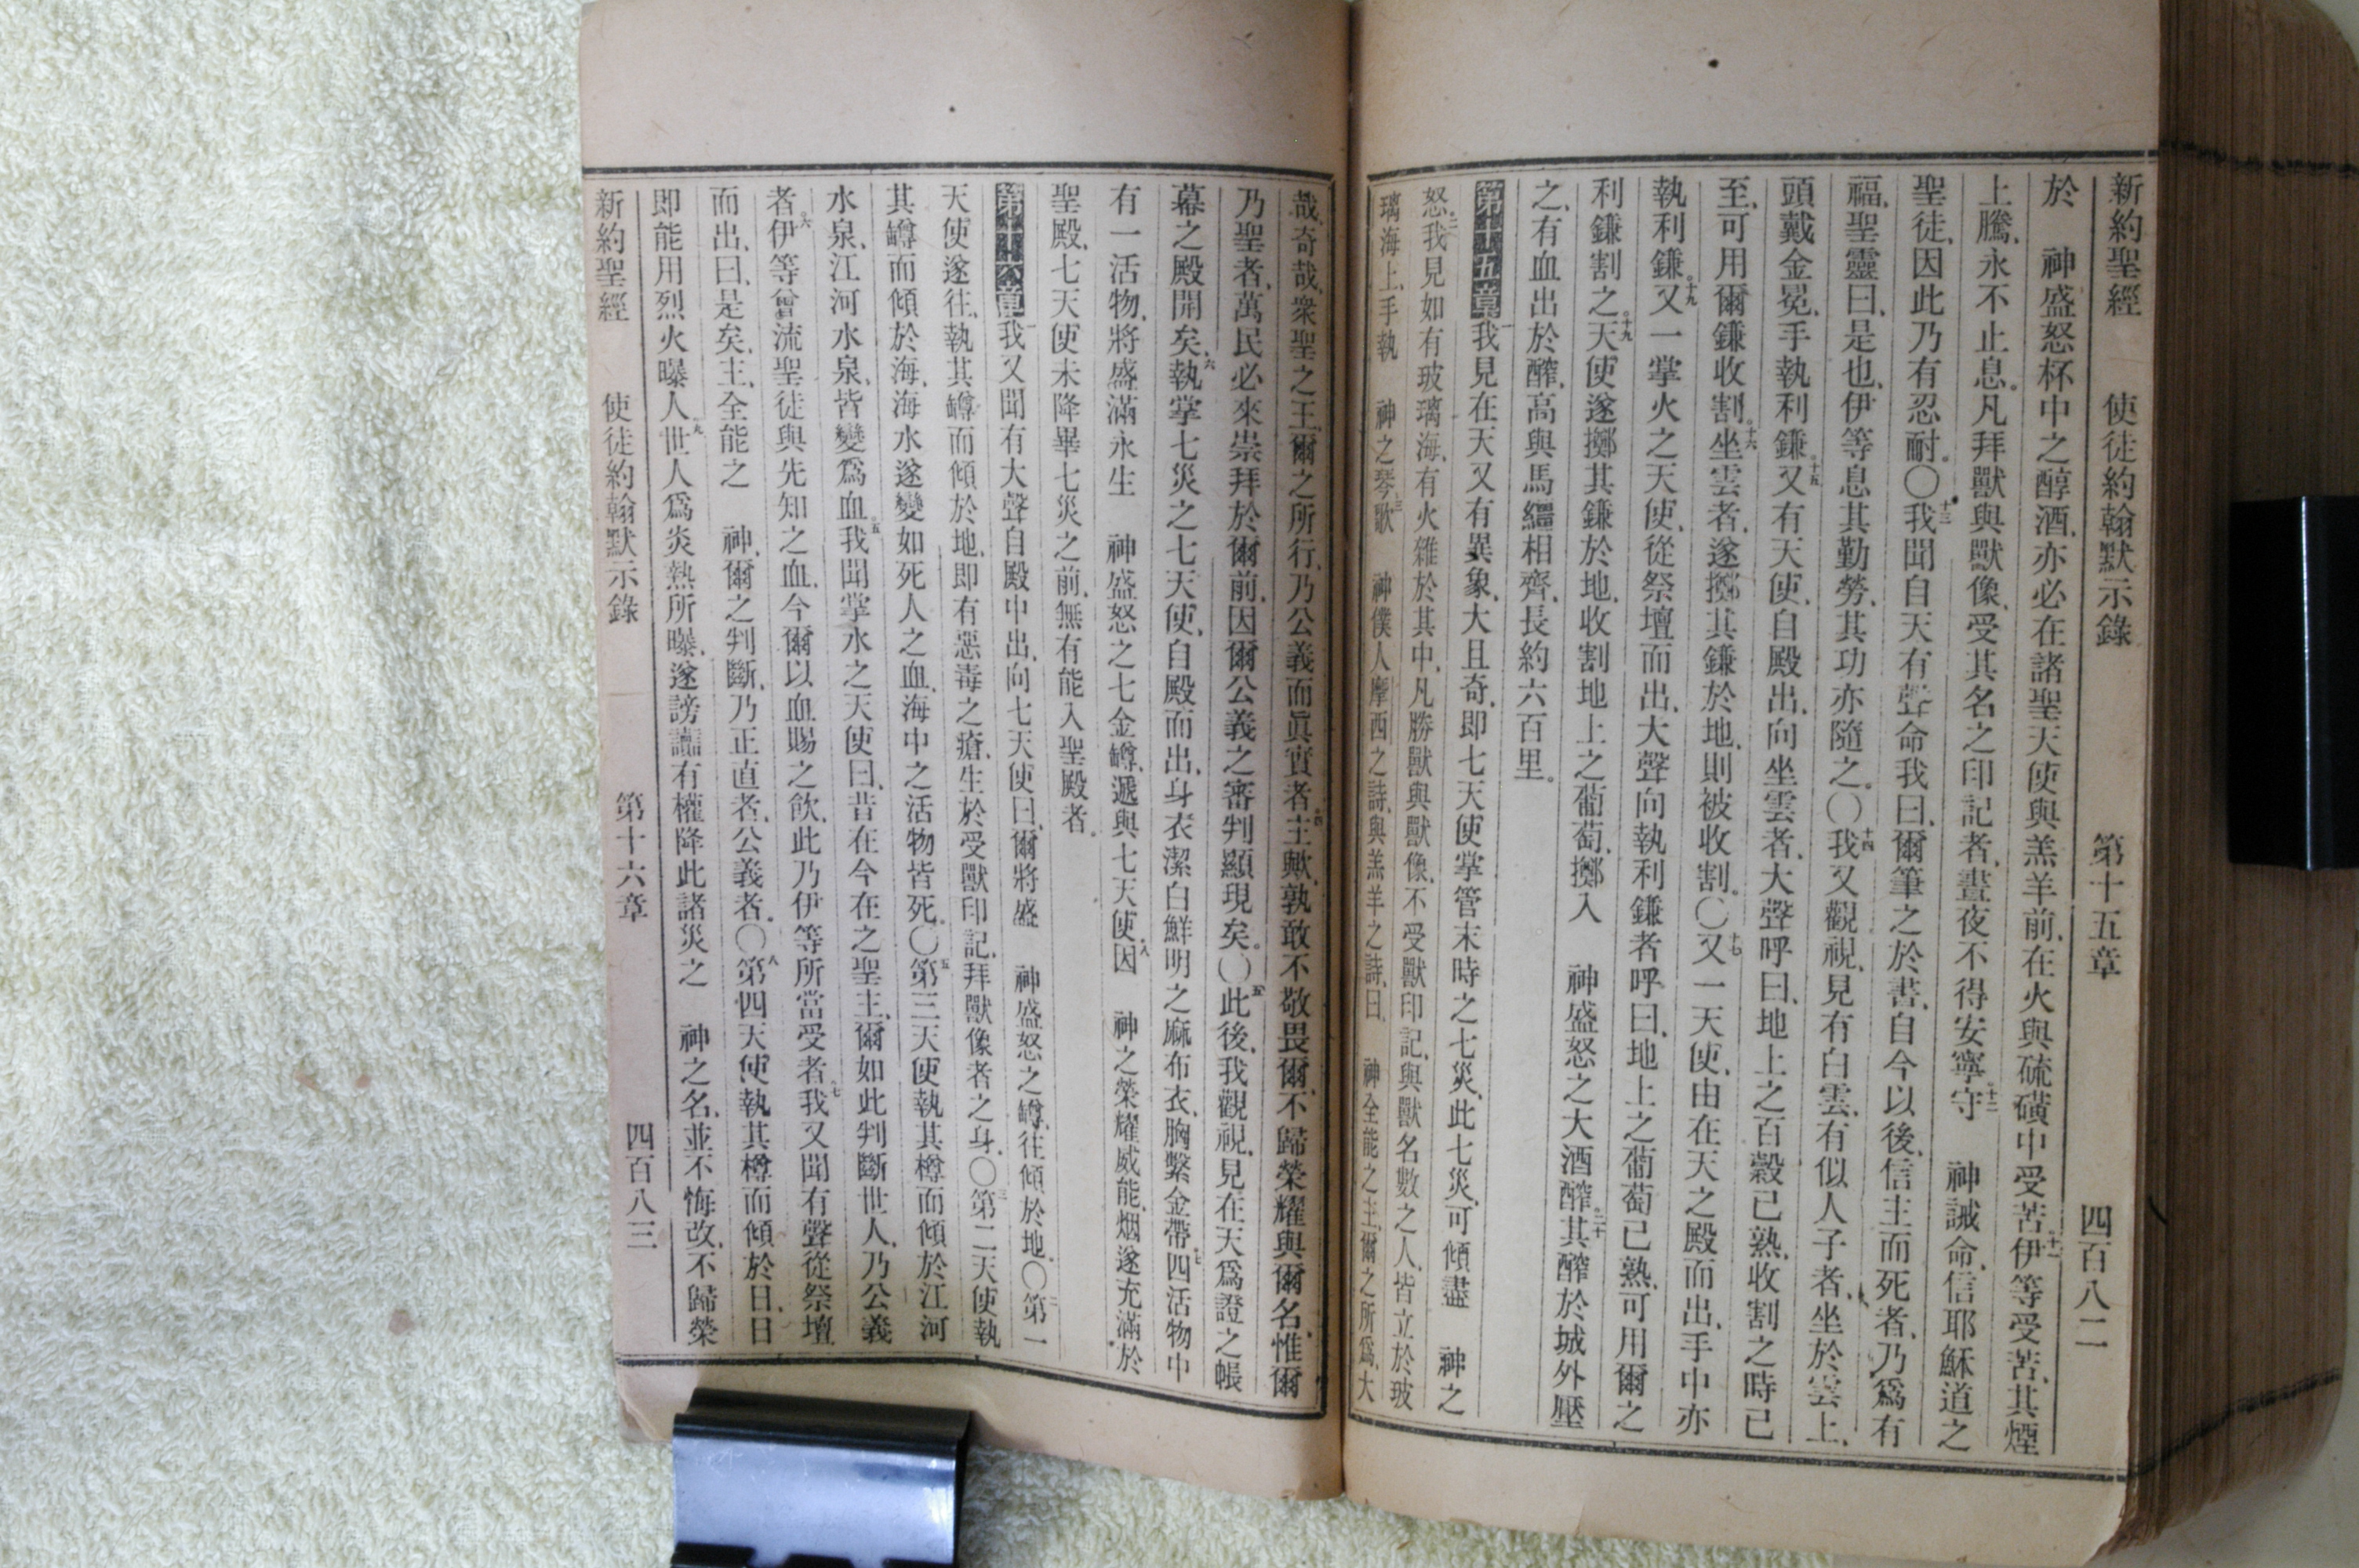 新約聖經　使徒約翰默示錄　第十五章　四百八二
於　神盛怒杯中之醇酒、亦必在諸聖天使與羔羊前、在火與硫磺中受苦。十一伊等受苦、其煙
上騰、永不止息。凡拜獸與獸像、受其名之印記者、晝夜不得安寧。十二守　神誡命、信耶穌道之
聖徒、因此乃有忍耐。〇十三我聞自天有聲命我曰、爾筆之於書、自今以後、信主而死者、乃爲有
福、聖靈曰、是也、伊等息其勤勞、其功亦隨之。〇十四我又觀視、見有白雲、有似人子者、坐於雲上、
頭戴金冕、手執利鎌。十五又有天使、自殿出、向坐雲者、大聲呼曰、地上之百穀已熟、收割之時已
至、可用爾鎌收割。十六坐雲者、遂擲其鎌於地、則被收割。〇十七又一天使、由在天之殿而出、手中亦
執利鎌。十九又一掌火之天使、從祭壇而出、大聲向執利鎌者呼曰、地上之葡萄已熟、可用爾之
利鎌割之。十九天使遂擲其鎌於地、收割地上之葡萄、擲入　神盛怒之大酒醡。二十其醡於城外壓
之、有血出於醡、高與馬繮相齊、長約六百里。
第十五章一我見在天又有異象、大且奇、即七天使掌管末時之七災、此七災、可傾盡　神之
怒。二我見如有玻璃海、有火雜於其中、凡勝獸與獸像、不受獸印記、與獸名數之人、皆立於玻
璃海上、手執　神之琴。三歌　神僕人摩西之詩、與羔羊之詩、曰、　神全能之主、爾之所爲、大
哉、奇哉、衆聖之王、爾之所行、乃公義而眞實者。四主歟、孰敢不敬畏爾、不歸榮耀與爾名、惟爾
乃聖者、萬民必來崇拜於爾前、因爾公義之審判顯現矣。〇五此後、我觀視、見在天爲證之帳
幕之殿開矣、六執掌七災之七天使、自殿而出、身衣潔白鮮明之麻布衣、胸繫金帶。七四活物中
有一活物、將盛滿永生　神盛怒之七金罇、遞與七天使。八因　神之榮耀威能、烟遂充滿於
聖殿、七天使未降畢七災之前、無有能入聖殿者。
第十六章一我又聞有大聲自殿中出、向七天使曰、爾將盛　神盛怒之罇、往傾於地。〇二第一
天使遂往、執其罇而傾於地、即有惡毒之瘡、生於受獸印記、拜獸像者之身。〇三第二天使執
其罇而傾於海、海水遂變如死人之血、海中之活物皆死。〇五第三天使執其樽而傾於江河
水泉、江河水泉、皆變爲血。五我聞掌水之天使曰、昔在今在之聖主、爾如此判斷世人、乃公義
者。六伊等曾流聖徒與先知之血、今爾以血賜之飲、此乃伊等所當受者。七我又聞有聲從祭壇
而出、曰、是矣、主、全能之　神、爾之判斷、乃正直者、公義者。〇八第四天使執其樽而傾於日、日
即能用烈火曝人。九世人爲炎熱所曝、遂謗讟有權降此諸災之　神之名、並不悔改、不歸榮
新約聖經　使徒約翰默示錄　第十六章　四百八三